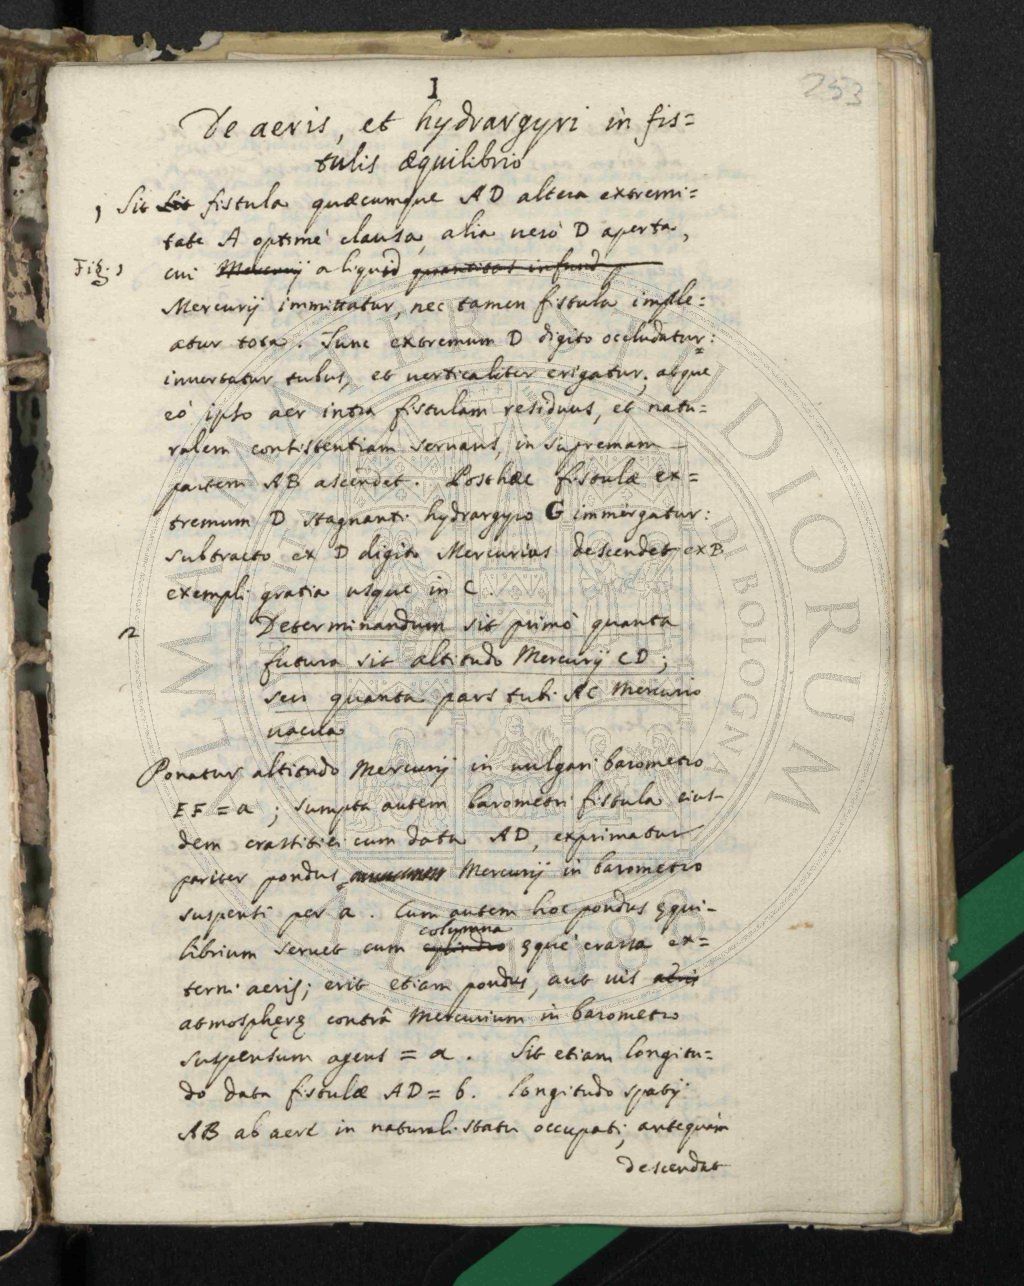 I
253
De aeris, et hydrargyri in fis=
tulis æquilibrio
1 Sit Sit fistula quæcumque AD altera extremi=
tate A optimè clausa, alia verò D aperta,
Fig. 1 cui Mercurij aliquid quantitas infund
Mercurij immittatur, nec tamen fistula imple=
atur tota. Tunc extremum D digito occludatur:
invertatur tubus, et verticaliter erigatur, atque
eò ipso aer intra fistulam residuus, et natu=
ralem consistentiam servans, in supremam
partem AB ascendet. Posthæc fistulæ ex=
tremum D stagnanti hydrargyro G immergatur:
subtracto ex D digito Mercurius descendet ex B
exempli gratia usque in C.
2 Determinandum sit primò quanta
futura sit altitudo Mercurij CD;
seu quanta pars tubi AC Mercurio
vacua
Ponatur altitudo Mercurij in vulgari barometro
EF = a; sumpta autem barometri fistula eius-
dem crassitiei cum data AD, exprimatur
pariter pondus Mercurij in barometro
suspensi per a. Cum autem hoc pondus ęqui-
columna
librium servet cum cylindro ęquè crassa ex=
terni aeris; erit etiam pondus, aut vis aeris
atmosphęrę contrà Mercurium in barometro
suspensum agens = a. Sit etiam longitu=
do data fistulæ AD = b. longitudo spatij
AB ab aere in naturali statu occupati, antequàm
descendat
ALMA MATER STUDIORUM
DI BOLOGNA
A.D. 1088